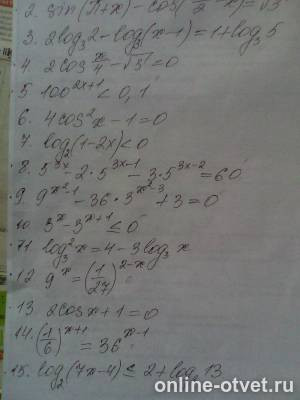 2. sin(π+x) - cos(π/2 - x) = √3
3. 2log₃2 - log₃(x-1) = 1 + log₃5
4. 2cos x/4 - √3 = 0
5 100^(2x+1) < 0,1
6. 4cos²x - 1 = 0
7. log₂(1-2x) < 0
8. 5^(3x) - 2·5^(3x-1) - 3·5^(3x-2) = 60
9. 9^(x²-1) - 36·3^(x²-3) + 3 = 0
10. 3^x - 3^(x+1) ≤ 0
11. log₃²x = 4 - 3log₃x
12 9^x = (1/27)^(2-x)
13 2cosx + 1 = 0
14. (1/6)^(x+1) = 36^(x-1)
15. log₂(7x-4) ≤ 2 + log₂13
online-otvet.ru